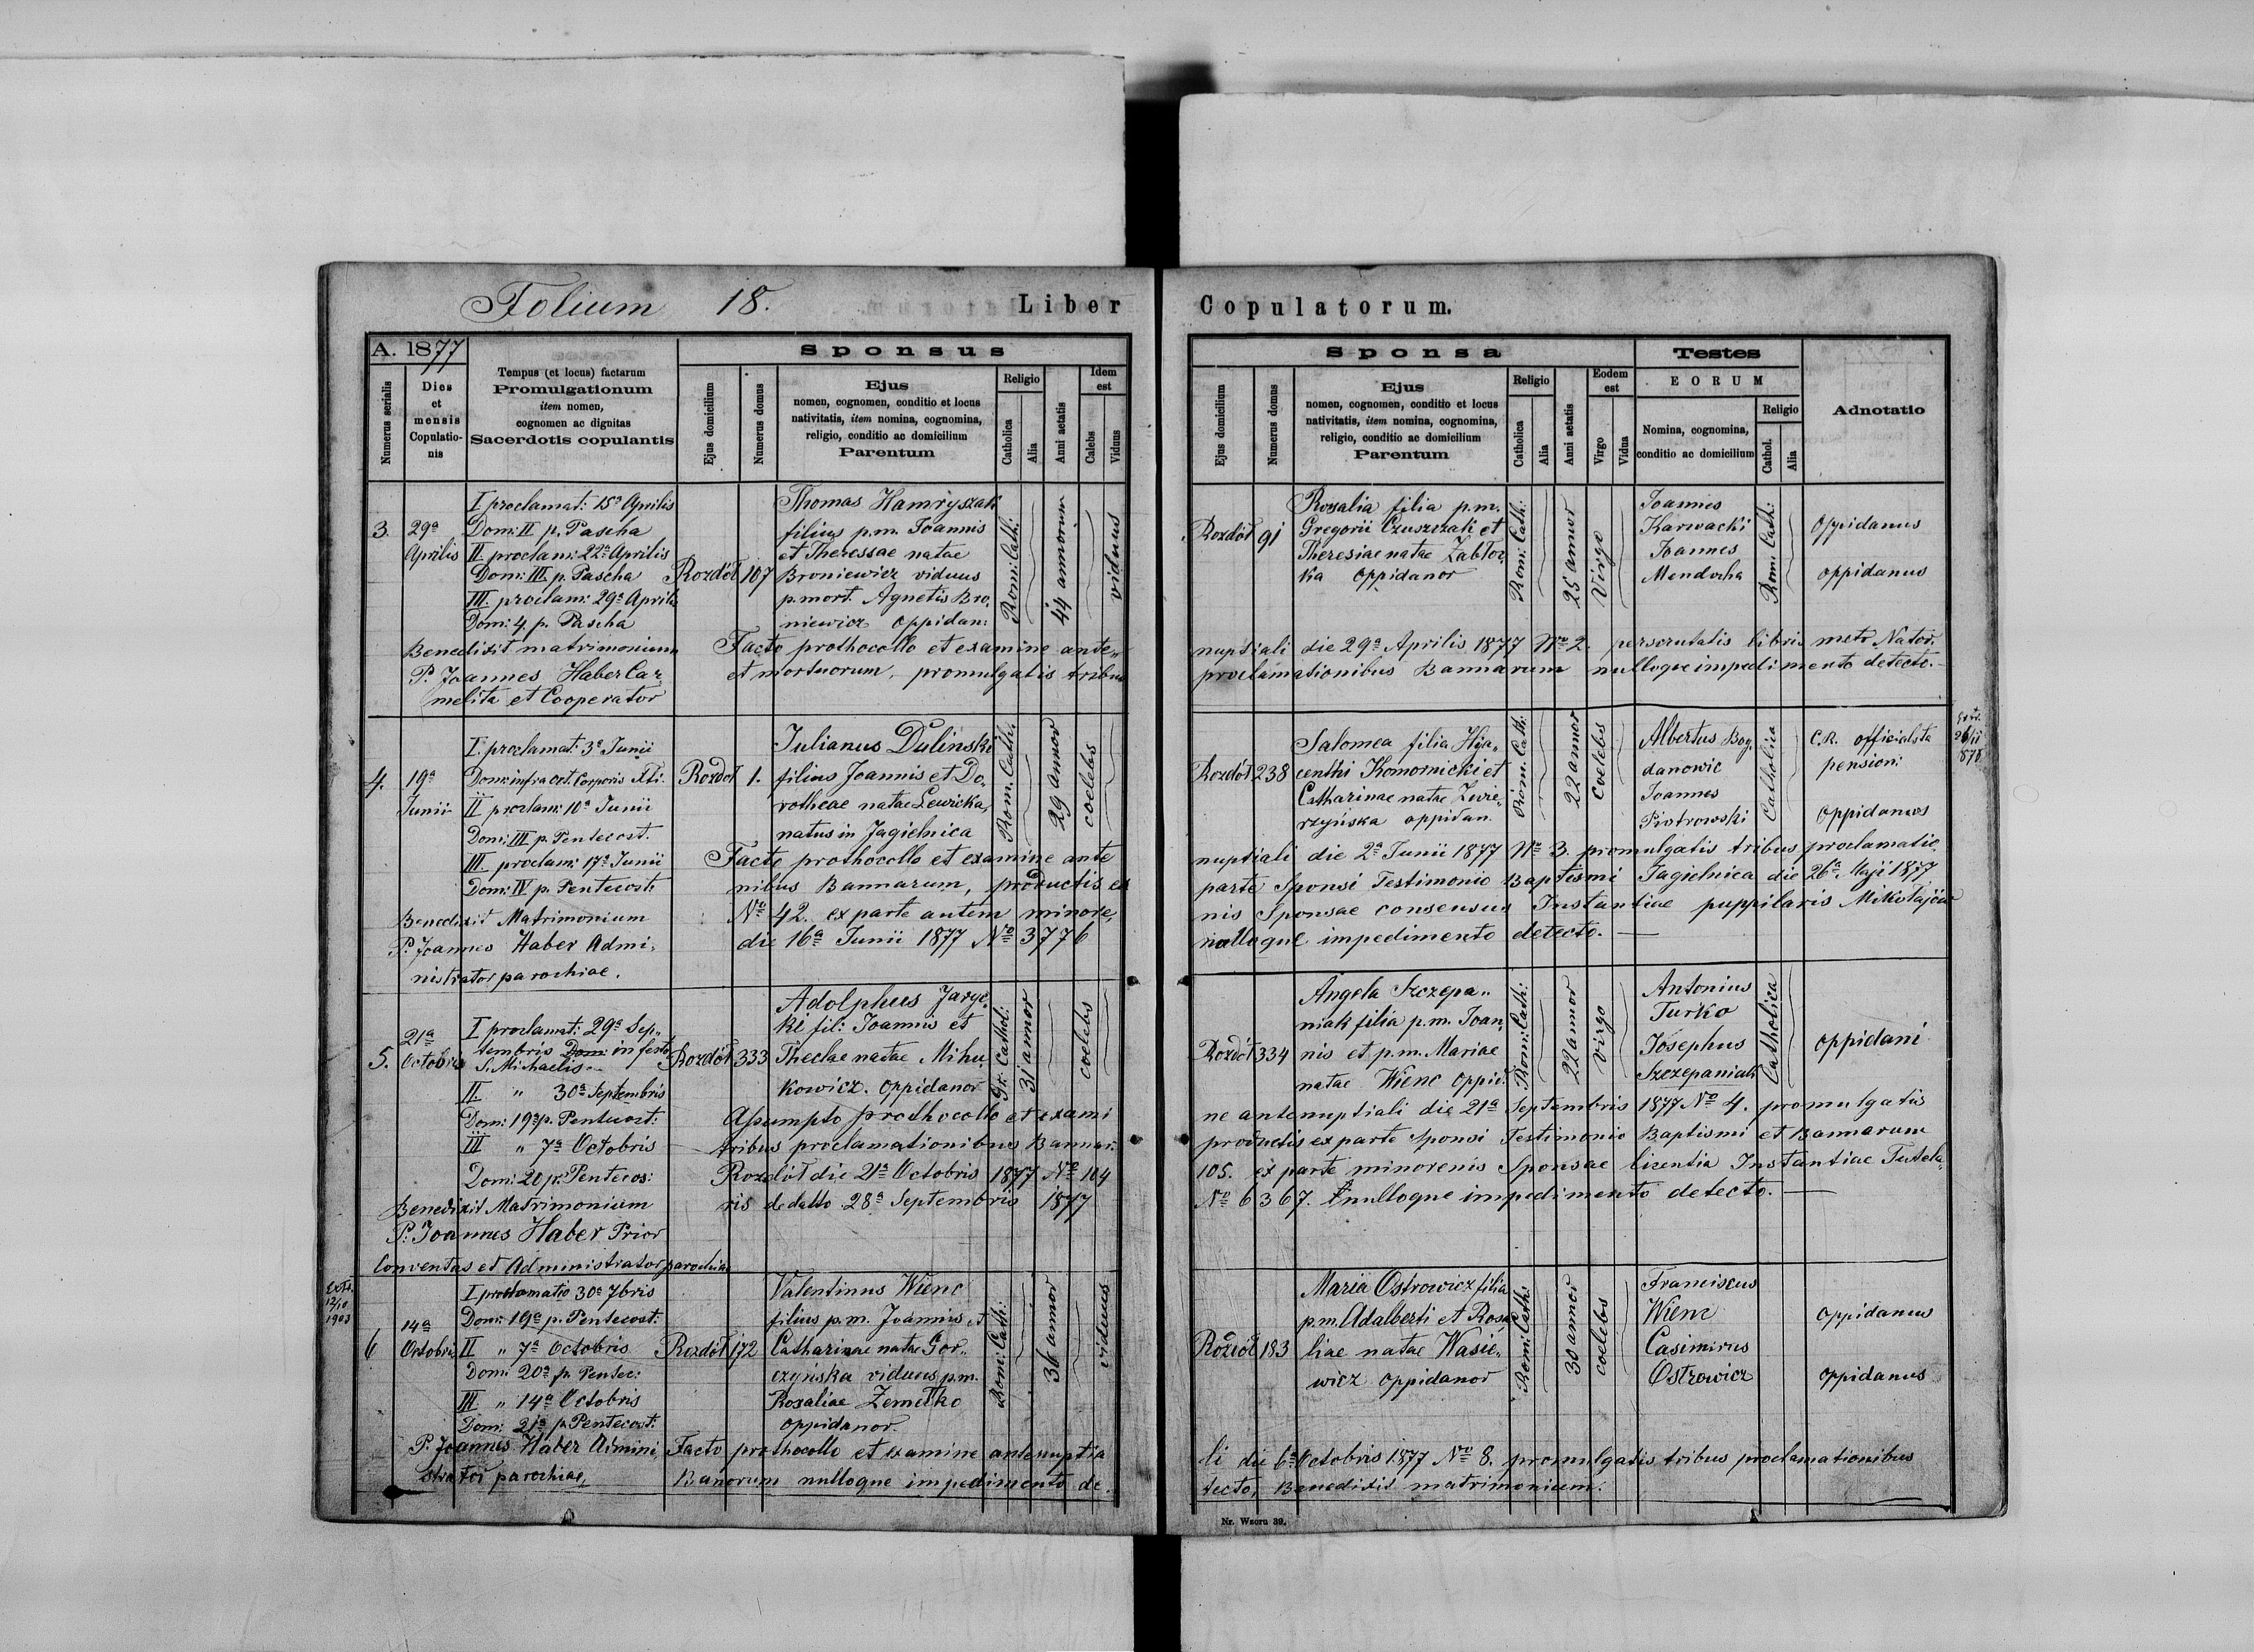 Folium 18.
Liber Copulatorum.
A. 1877
Numerus serialis
Dies
et
mensis
Copulatio-
nis
Tempus (et locus) factarum
Promulgationum
item nomen,
cognomen ac dignitas
Sacerdotis copulantis
Sponsus
Ejus domicilium
Numerus domus
Ejus
nomen, cognomen, conditio et locus
nativitatis, item nomina, cognomina,
religio, conditio ac domicilium
Parentum
Religio
Catholica
Alia
Anni aetatis
Idem
est
Calebs
Viduus
Sponsa
Ejus domicilium
Numerus domus
Ejus
nomen, cognomen, conditio et locus
nativitatis, item nomina, cognomina,
religio, conditio ac domicilium
Parentum
Religio
Catholica
Alia
Anni aetatis
Eodem
est
Virgo
Vidua
Testes
EORUM
Nomina, cognomina,
conditio ac domicilium
Religio
Cathol.
Alia
Adnotatio
3.
29a
Aprilis
I proclamat: 15a Aprilis
Dom: II p. Pascha
II proclam: 22a Aprilis
Dom: III p. Pascha
III. proclam: 29a Aprilis
Dom: 4. p. Pascha
Benedixit matrimonium
P. Joannes Haber Car,
melita et Cooperator
Rozdół 107
Thomas Hamryszak
filius p.m. Joannis
et Theressae natae
Broniewicz viduus
p.mort. Agnetis Bro,
niewicz oppidan:
Rom: Cath:
44 annorum
viduus
Rozdół 91
Rosalia filia p.m.
Gregorii Czuszczak et
Theresiae natae Zabłoz
ka oppidanor
Rom: Cath:
25 annor
Virgo
Joannes
Karwacki
Joannes
Mendocha
Rom: Cath:
oppidanus
oppidanus
Facto prothocollo et examine ante„ nuptiali die 29a Aprilis 1877 No 2. perscrutatis libris metr. Nator.
et mortuorum, promulgatis tribus proclamationibus Bannarum nulloque impedimento detecto.
4.
19a
Junii
I. proclamat: 3a Junii
Dom: infra oct. Corporis Xti.
II proclam: 10a Junii
Dom: III p. Pentecost.
III proclam: 17a Junii
Dom: IV p. Pentecost:
Benedixit Matrimonium
P. Joannes Haber Admi,
nistrator parochiae.
Rozdół 1.
Julianus Dulinski
filius Joannis et Do,
rotheae natae Lewicka,
natus in Jagielnica
Rom. Cath:
29 annor
coelebs
Rozdół 238
Salomea filia Hya„
centhi Komornicki et
Catharinae natae Zwie„
rzyńska oppidan.
Rom. Cath:
22 annor
Coelebs
Albertus Bog
danowic
Joannes
Piotrowski
Catholica
C.R. officialsta
pension:
oppidanus
Extr.
26/11
878
Facto prothocollo et examine ante nuptiali die 2a Junii 1877 No 3. promulgatis tribus proclamatio,
nibus Bannarum, productis ex parte Sponsi Testimonio Baptismi Jagielnica die 26a Maji 1877
No 42. ex parte autem minore, nis Sponsae consensus Instantiae puppilaris Mikołajów
die 16a Junii 1877 No 3776 nulloque impedimento detecto.
5.
21a
Octobris
I proclamat: 29a Sep„
tembris Dom: in festo
S. Michaelis
II. „ 30a Septembris
Dom: 19a p. Pentecost:
III „ 7a Octobris
Dom: 20 p. Pentecos:
Benedixit Matrimonium
P. Joannes Haber Prior
Conventus et Administrator parochiae
Rozdół 333
Adolphus Jarge,
ki fil: Joannis et
Theclae natae Mihu,
kowicz. oppidanor
Gr. Cathol:
31 annor
coelebs
Rozdół 334
Angela Szczepa„
niak filia p.m. Joan,
nis et p.m. Mariae
natae Wienc oppid:
Rom: Cath:
22 annor
virgo
Antonius
Turko
Josephus
Szczepaniak
Catholica
oppidani
Assumpto prothocollo et exami ne antenuptiali die 21a Septembris 1877 No 4. promulgatis
tribus proclamationibus Bannar: productis ex parte Sponsi Testimonio Baptismi et Bannarum
Rozdół die 21a Octobris 1877 No 104 105. ex parte minorenis Sponsae licentia Instantiae Tutela,
ris de datto 28a Septembris 1877 No 6367. nulloque impedimento detecto.
Extr.
12/10
1903
6
14a
Octobris
I proclamatio 30a 7bris
Dom: 19a p. Pentecost:
II „ 7a Octobris
Dom: 20a p. Pentec:
III „ 14a Octobris
Dom: 21a p. Pentecost:
P. Joannes Haber Admini,
strator parochiae,
Rozdół 172
Valentinus Wienc
filius p.m. Joannis et
Catharinae natae Gor„
czyńska viduus p.m.
Rosaliae Zemełko
oppidanor.
Rom: Cath:
36 annor
viduus
Rozdół 183
Maria Ostrowicz filia
p.m. Adalberti et Rosa,
liae natae Wasie,
wicz oppidanor
Rom: Cath:
30 annor
coelebs
Franciscus
Wienc
Casimirus
Ostrowicz
oppidanus
oppidanus
Facto prothocollo et examine antenuptia li die 6a Octobris 1877 No 8. promulgatis tribus proclamationibus
Banorum nulloque impedimento de, tecto, Benedixit matrimonium.
Nr. Wzoru 39.